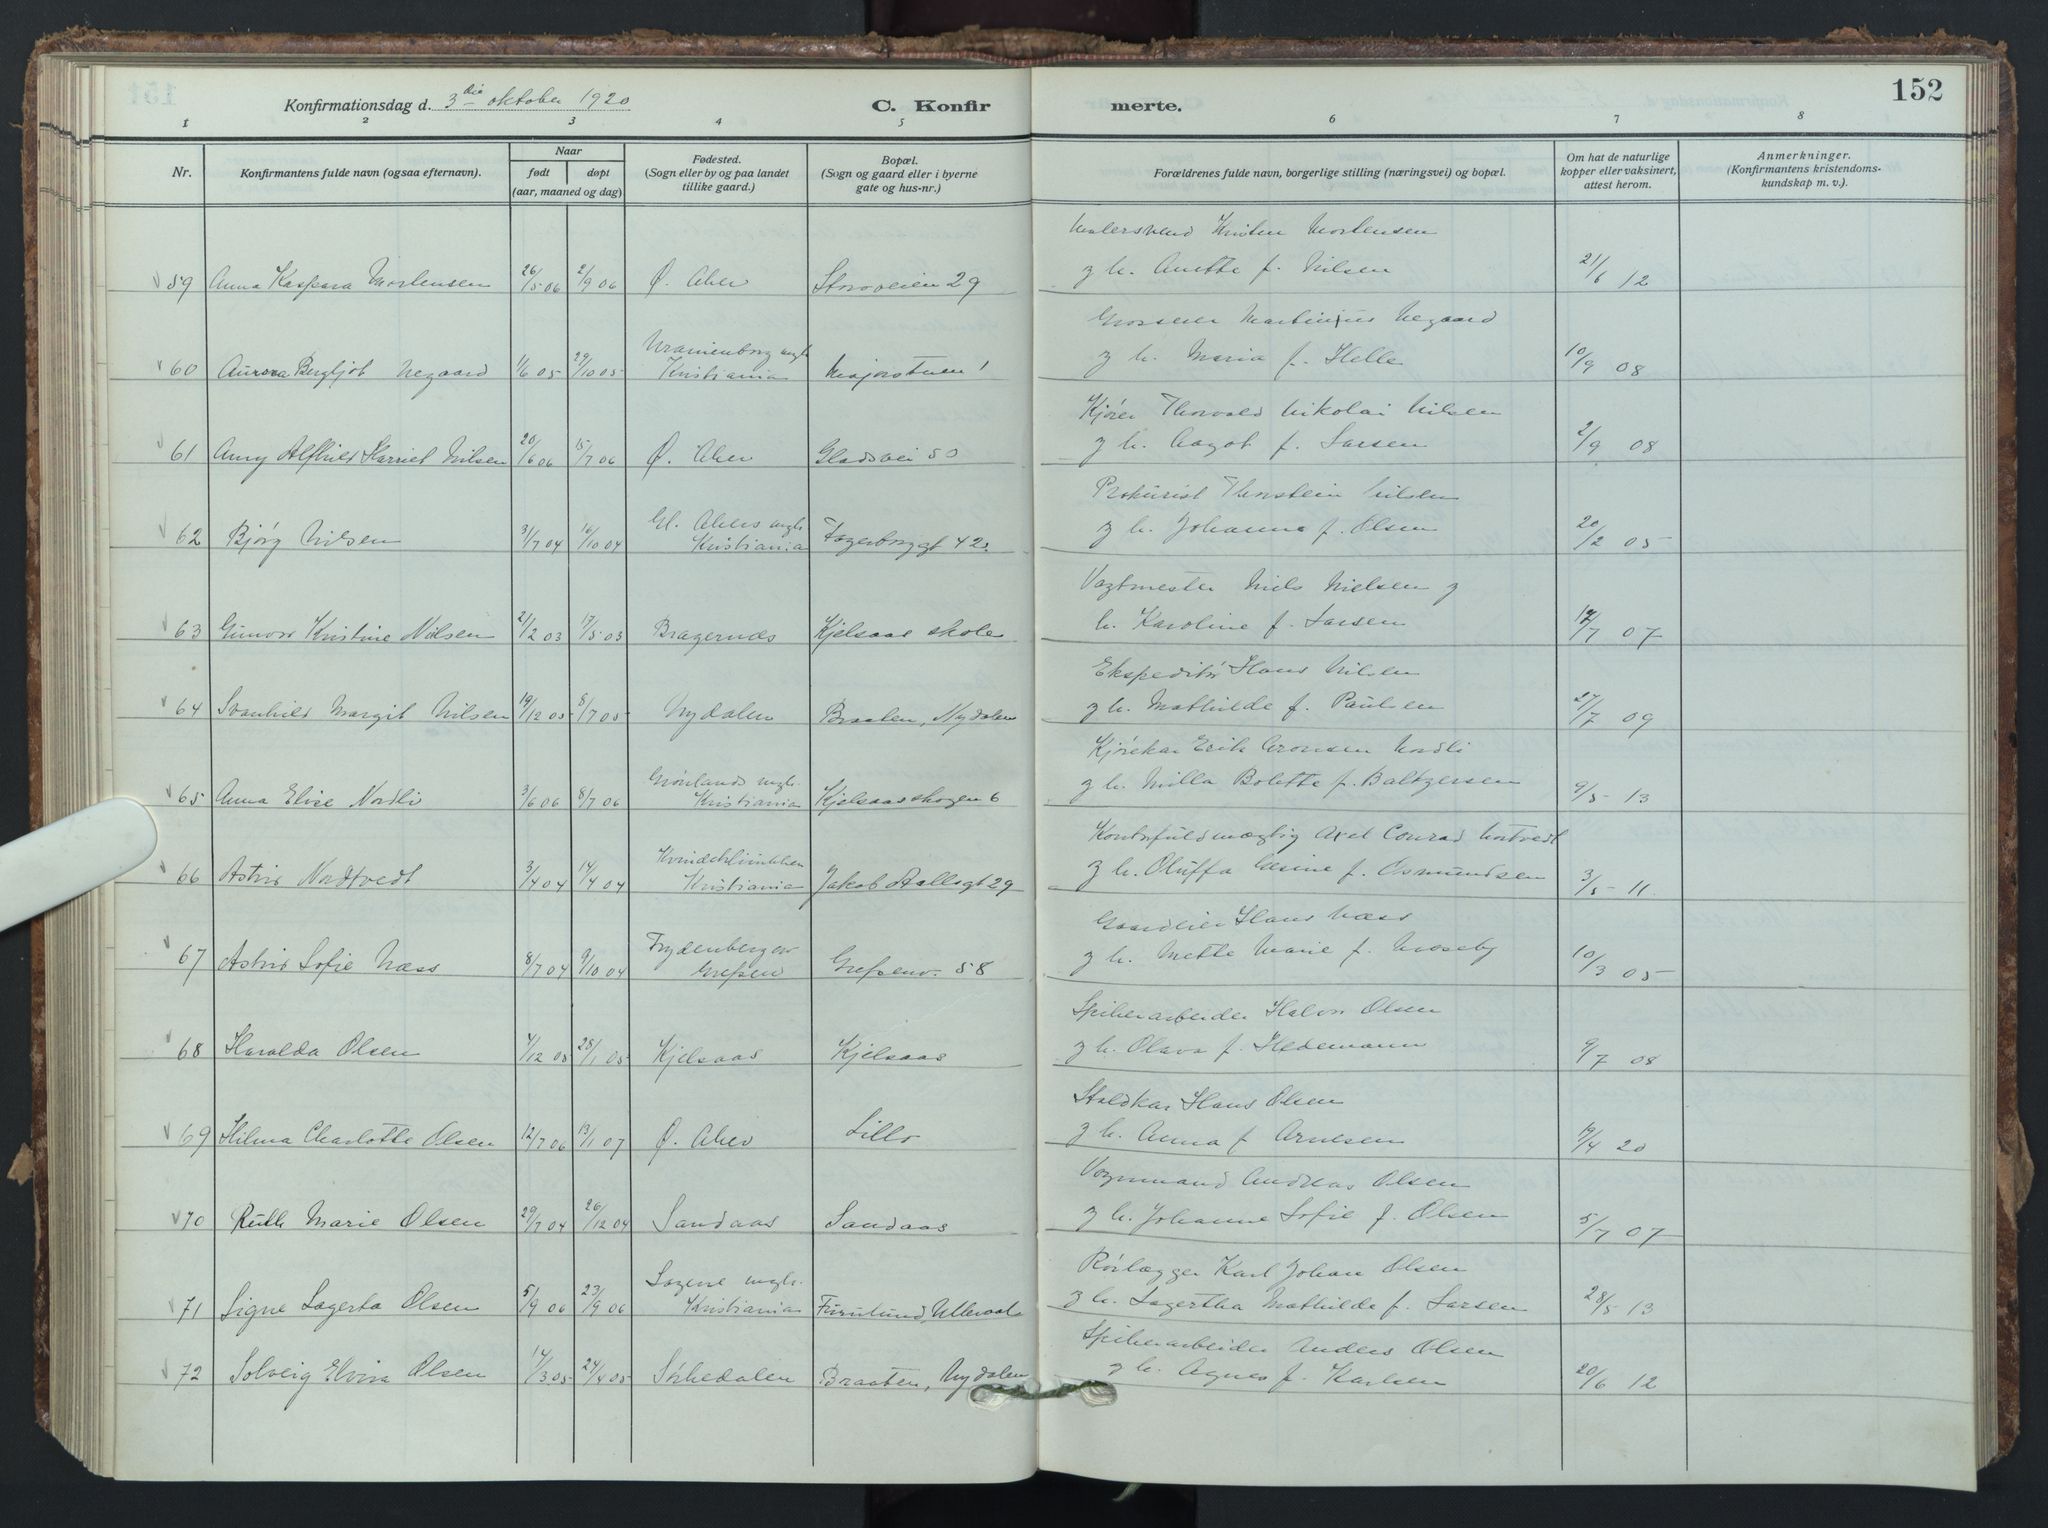 152
Konfirmationsdag d. 3die oktober 1920 C. Konfir merte.
1 2 3 4 5 6 7 8
Nr. Konfirmantens fulde navn (ogsaa efternavn). Naar født døpt (aar, maaned og dag) Fødested. (Sogn eller by og paa landet tillike gaard.) Bopæl. (Sogn og gaard eller i byerne gate og hus-nr.) Forældrenes fulde navn, borgerlige stilling (næringsvei) og bopæl. Om hat de naturlige kopper eller vaksinert, attest herom. Anmerkninger. (Konfirmantens kristendoms-kundskap m. v.).
Malersvend Kristen Mortensen
59 Anna Kaspara Mortensen 26/5 06 2/9 06 Ø. Aker Storoveien 29 g h. Anette f. Nilsen 21/6 12
Uranienborg mgh. Grosserer Martinius Negaard
60 Aurora Bergljot Negaard 1/6 05 29/10 05 Kristiania Majorstuen 1 g h. Maria f. Helle 10/9 08
Kjører Thorvald Nikolai Nilsen
61 Anny Alfhild Harriet Nilsen 20/6 06 15/7 06 Ø. Aker Gladsvei 50 g h. Aagot f. Larsen 2/9 08
Gl. Akers mgh. Prokurist Thorstein Nilsen
62 Bjørg Nilsen 31/7 04 16/10 04 Kristiania Fagerborggt 42 g h. Johanna f. Olsen 20/2 05
Vagtmester Niels Nielsen g
63 Gunvor Kristine Nilsen 21/2 03 17/5 03 Bragernes Kjelsaas skole h. Karoline f. Larsen 17/7 07
Ekspeditør Hans Nilsen
64 Svanhild Margit Nilsen 19/12 05 8/7 05 Nydalen Braaten, Nydalen g h. Mathilde f. Paulsen 27/7 09
Grønlands mgh. Kjørekar Erik Aronsen Nordli
65 Anna Elise Nordli 3/6 06 8/7 06 Kristiania Kjelsaasskogen 6 g h. Milla Bolette f. Baltzersen 9/5 13
Kvindeklinikken Kontorfuldmægtig Axel Conrad Nortvedt
66 Astrid Nordtvedt 3/4 04 14/4 04 Kristiania Jakob Aallsgt 29 g h. Oluffa Gesine f. Osmundsen 3/5 11.
Frydenberg Gaardeier Hans Næss
67 Astrid Sofie Næss 8/7 04 9/10 04 Grefsen Grefsenv. 58 g h. Mette Marie f. Moseby 10/3 05
Spikerarbeider Halvor Olsen
68 Haralda Olsen 4/12 05 28/1 05 Kjelsaas Kjelsaas g h. Olava f. Hedemann 9/7 08
Staldkar Hans Olsen
69 Hilma Charlotte Olsen 12/7 06 13/1 07 Ø. Aker Lillo g h. Anna f Arnesen 19/4 20
Vognmand Andreas Olsen
70 Ruth Marie Olsen 29/7 04 26/12 04 Sandaas Sandaas g h. Johanne Sofie f. Olsen 5/7 07
Sagene mgh. Rørlægger Karl Johan Olsen
71 Signe Lagerta Olsen 5/9 06 23/9 06 Kristiania Furulund, Ullevaal g h. Lagertha Mathilde f. Larsen 28/5 13
Spikerarbeider Anders Olsen
72 Solveig Elvira Olsen 14/3 05 24/4 05 Sørkedalen Braaten, Nydalen g h. Agnes f. Karlsen 20/6 12